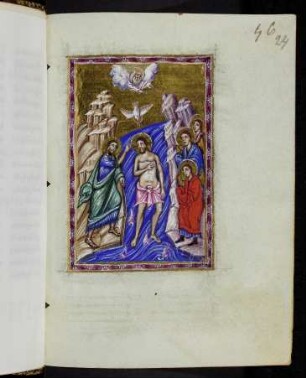 46
24